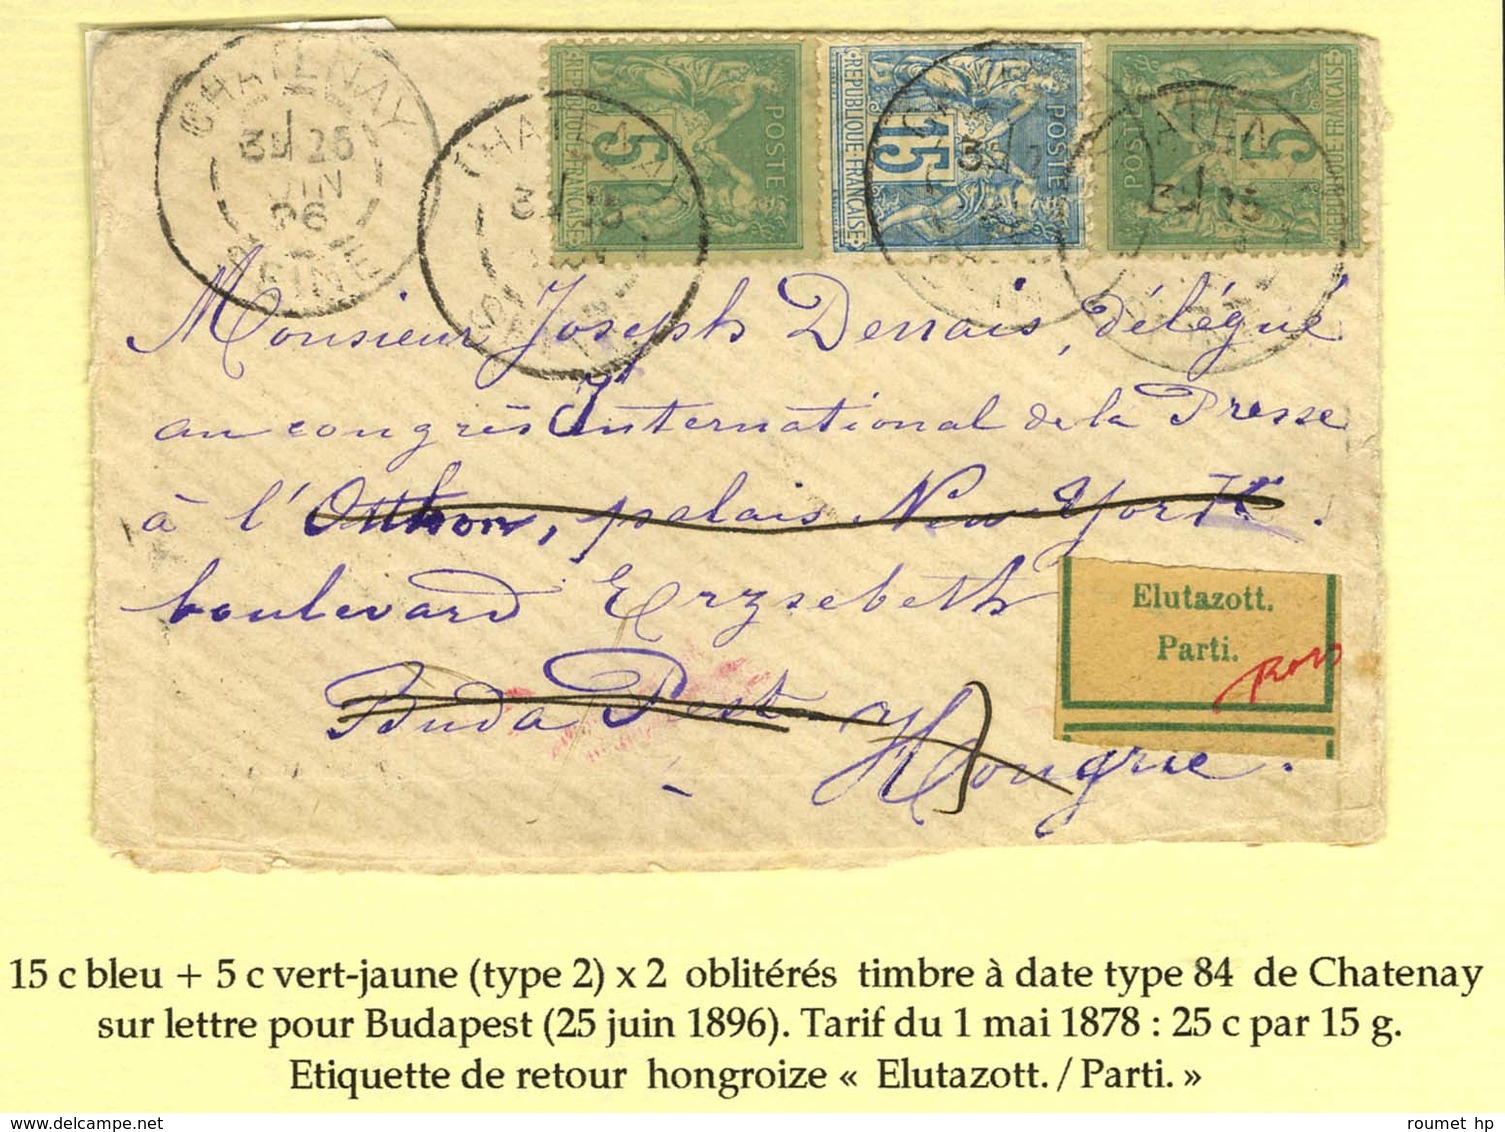 CHATENAY
3E 25
JUIN
96
SEINE
CHATENAY
5
POSTE
RÉPUBLIQUE FRANÇAISE
15
POSTE
POSTE
5
RÉPUBLIQUE FRANÇAISE
Monsieur Joseph Denais, délégué
au congrès International de la Presse
à l'Otthon, palais New York.
boulevard Erzsebeth
Buda Pest
Hongrie.
Elutazott.
Parti.
15 c bleu + 5 c vert-jaune (type 2) x 2 oblitérés timbre à date type 84 de Chatenay
sur lettre pour Budapest (25 juin 1896). Tarif du 1 mai 1878 : 25 c par 15 g.
Etiquette de retour hongroize « Elutazott. / Parti. »
roumet hp